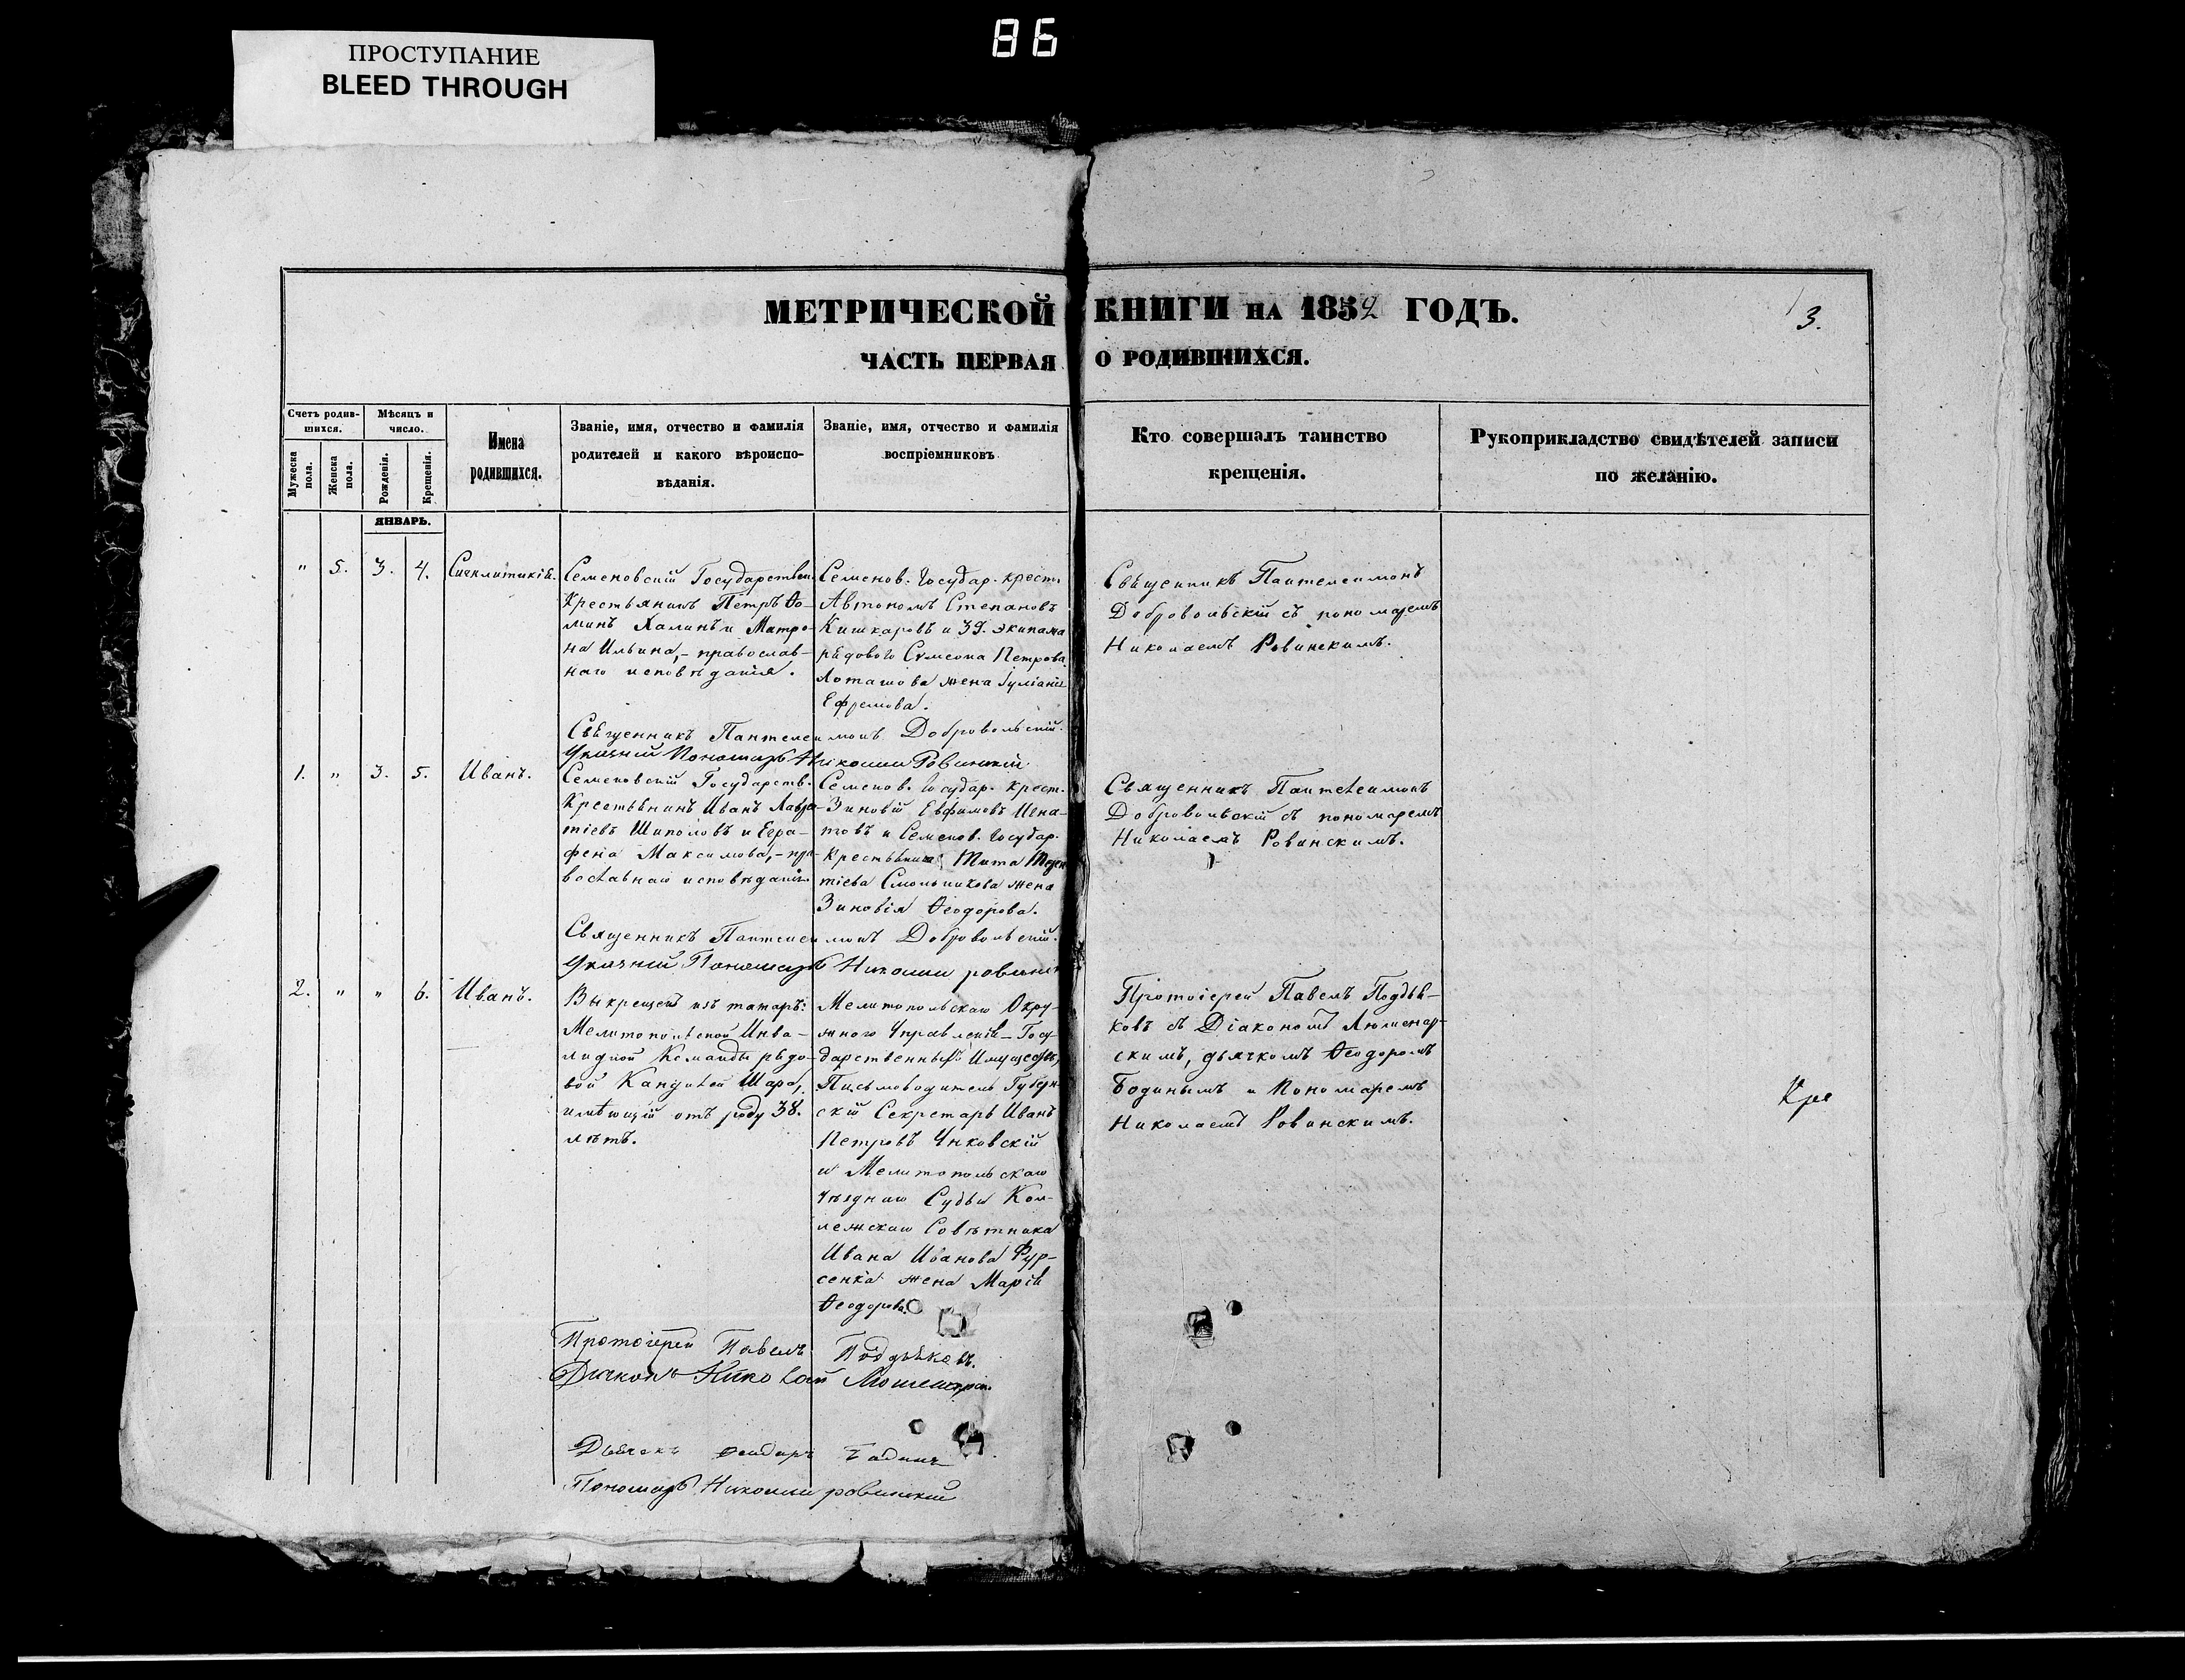 86
ПРОСТУПАНИЕ
BLEED THROUGH
МЕТРИЧЕСКОЙ КНИГИ НА 1852 ГОДЪ.
3.
ЧАСТЬ ПЕРВАЯ О РОДИВШИХСЯ.
Счетъ родив-
шихся.
Мужеска пола.
Женска пола.
Мѣсяцъ и
число.
Рожденія.
Крещенія.
Имена
родившихся.
Званіе, имя, отчество и фамилія
родителей и какого вѣроиспо-
вѣданія.
Званіе, имя, отчество и фамилія
воспріемниковъ.
Кто совершалъ таинство
крещенія.
Рукоприкладство свидѣтелей записи
по желанію.
ЯНВАРЬ.
" 5. 3. 4.
Семеновскій Государствен.
Крестьянинъ Петръ Ѳо-
минъ Халинъ и Матро-
на Ильина,- православ-
наго исповѣданія.
Семенов. Государ. крест.
Автономъ Степановъ
Кишкаровъ и 39. экипажа
рядового Сѵмеона Петрова
жена Іуліанія
Ефремова.
Священникъ Пантелеимонъ
Добровольскій съ пономаремъ
Николаемъ Ровинскимъ.
Священникъ Пантелеимонъ Добровольскій.
Пономарь Николай Ровинскій
1. " 3. 5. Иванъ.
Семеновскій Государств.
Крестьянинъ Иванъ Лавре-
тіевъ Шиполовъ и Егра-
фена Максимова,- пра-
вославнаго исповѣданія.
Семенов. Государ. крест.
Зиновій Евфимовъ Цена-
товъ и Семенов. Государ.
Тита
тіева Смольникова жена
Зиновія Ѳеодорова.
Священникъ Пантелеимонъ
Добровольскій съ пономаремъ
Николаемъ Ровинскимъ.
Священникъ Пантелеимонъ Добровольскій.
Пономарь Николай
2. " " 6. Иванъ.
Выкрещенъ изъ татаръ:
Мелитопольской Инва-
лидной Команды рядо-
вой Кандалей Шара,
имѣющій отъ роду 38.
лѣтъ.
Мелитопольскаго Окру-
жного Управленія Госу-
дарственныхъ Имуществъ,
Письмоводитель Губерн-
скій Секретарь Иванъ
Петровъ Унковскій
и Мелитопольскаго
Уѣзднаго Судьи Кол-
лежскаго Совѣтника
Ивана Иванова Фур-
сенка жена Марія
Ѳеодорова.
Протоіерей Павелъ Поддья-
ковъ съ Діакономъ
скимъ, дьячкомъ Ѳеодоромъ
Бодинымъ и Пономаремъ
Николаемъ Ровинскимъ.
Кре
Протоіерей Павелъ Поддьяковъ.
Діаконъ Николай
Дьячекъ Феодоръ Бадинъ
Пономарь Николай Ровинскій